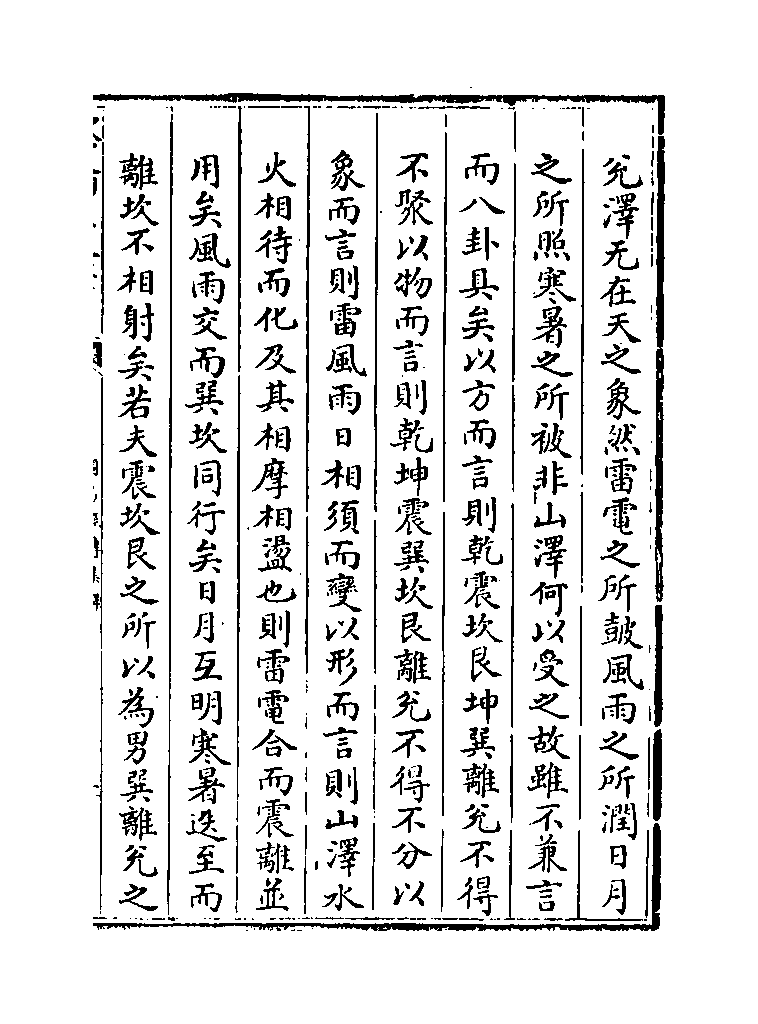 兊澤无在天之象然雷電之所鼓風雨之所潤日月
之所照寒暑之所被非山澤何以受之故雖不兼言
而八卦具矣以方而言則乾震坎艮坤巽離兊不得
不聚以物而言則乾坤震巽坎艮離兊不得不分以
象而言則雷風雨日相須而變以形而言則山澤水
火相待而化及其相摩相盪也則雷電合而震離並
用矣風雨交而巽坎同行矣日月互明寒暑迭至而
離坎不相射矣若夫震坎艮之所以為男巽離兊之